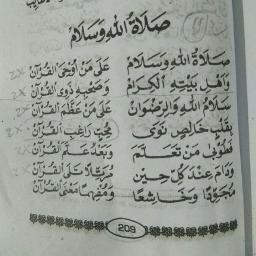 صَلَاةُ اللهِ وَسَلَامُ
صَلَاةُ اللهِ وَسَلَامُ عَلَى مَنْ أُوْحِيَ القُرْآنْ 2X
وَاَهْلِ بَيْتِهِ الْكِرَامْ وَصَحْبِهِ ذَوِى القُرْآنْ 2X
سَلَامُ اللهِ وَالرِّضْوَانْ عَلَى مَنْ عَظَّمَ القُرْآنْ
بِقَلْبٍ خَالِصٍ نَوَى مُحِبٌّ رَاغِبُ القُرْآنْ
فَطُوْبَى مَنْ تَعَلَّمَ وَبَعْدُ عَلَّمَ القُرْآنْ
وَدَامَ عِنْدَ كُلِّ حِيْنٍ مُرَتِّلًا تَلَى القُرْآنْ
مُجَوِّدًا وَخَاشِعًا وَمُفْهِمًا مَعْنَى القُرْآنْ
209